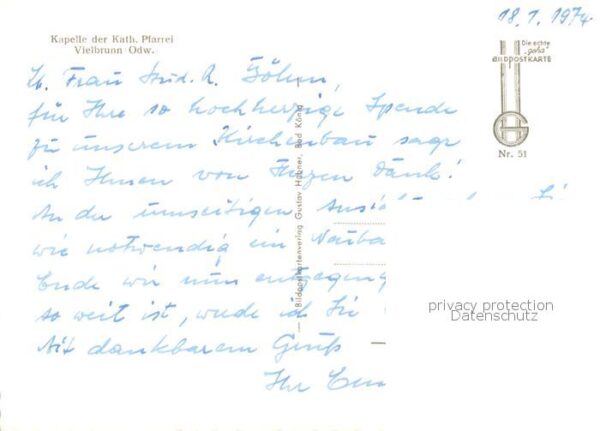 18.7.1974
Kapelle der Kath. Pfarrei
Vielbrunn Odw.
Die echte
"goha"
BILDPOSTKARTE
Nr. 51
Lb. Frau Stud. R. Böhm,
für Ihre so hochherzige Spende
zu unserem Kirchenbau sage
ich Ihnen von Herzen Dank!
An der umseitigen
wie notwendig ein
Ende wir nun
so weit ist, werde ich Sie
Mit dankbarem Gruß
Ihr
Bildpostkartenverlag Gustav Hübner, Bad König
privacy protection
Datenschutz